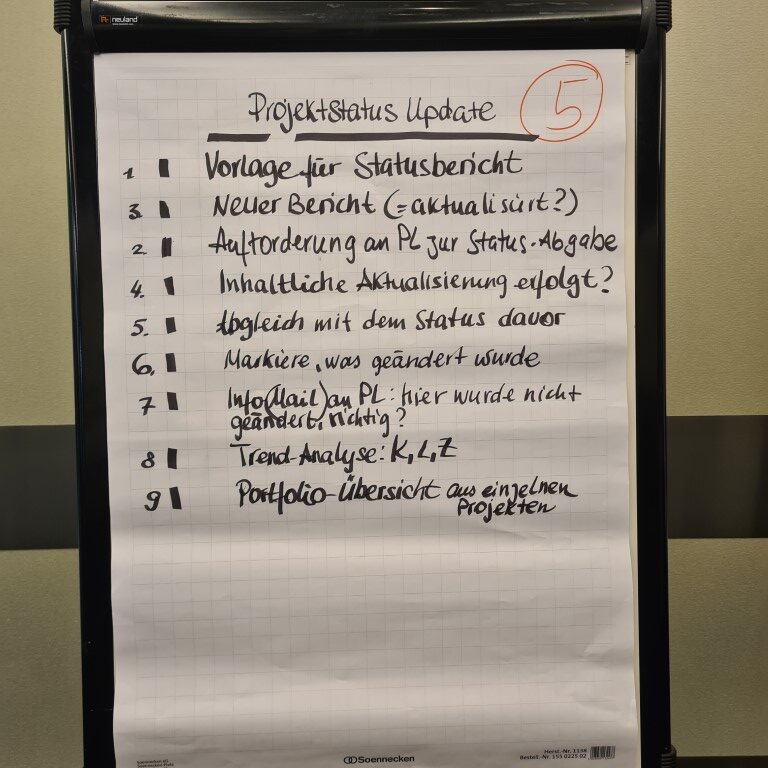 neuland
Projektstatus Update
5
1. Vorlage für Statusbericht
3. Neuer Bericht (= aktualisiert?)
2. Aufforderung an PL zur Status-Abgabe
4. Inhaltliche Aktualisierung erfolgt?
5. Abgleich mit dem Status davor
6. Markiere, was geändert wurde
7 Info(Mail) an PL: hier wurde nicht
geändert, richtig?
8 Trend-Analyse: K, L, Z
9 Portfolio-Übersicht aus einzelnen
Projekten
Soennecken eG
Soennecken-Platz
Soennecken
Herst.-Nr. 1138
Bestell.-Nr. 155 0225 02